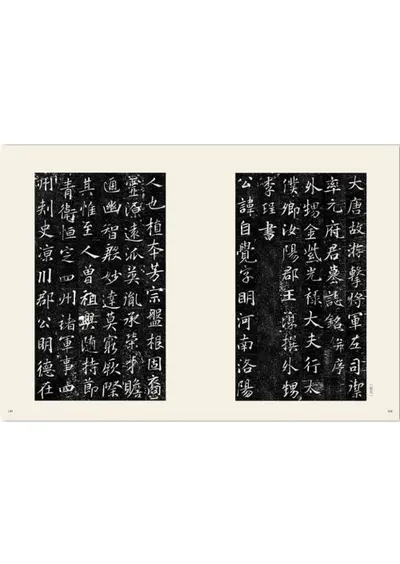 大唐故游擊將軍左司禦
率元府君墓誌銘并序
外甥金紫光祿大夫行太
僕卿汝陽郡王淳撰外甥
李珽書
公諱自覺字明河南洛陽
人也植本芳宗盤根固裔
靈源遠派英胤承榮才贍
幽智叡妙達莫窮際
其惟至人曾祖興隨持節
青衛恒定四州諸軍事四
州刺史涼川郡公明德在